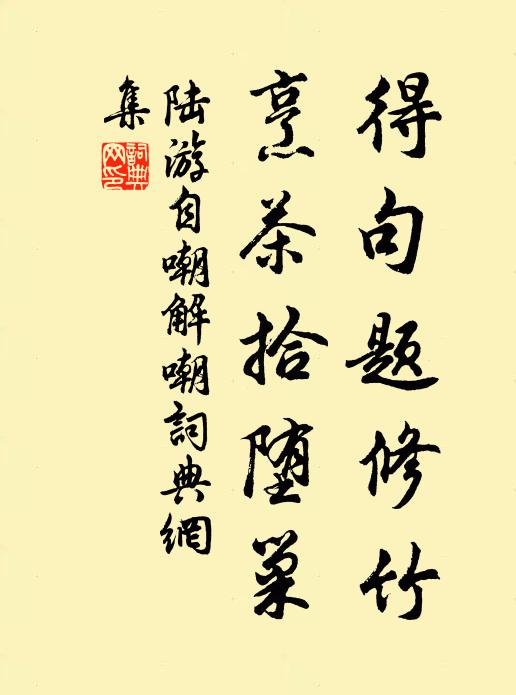 得句题修竹
烹茶拾堕巢
陆游自嘲解嘲詞典網
集
詞典网印